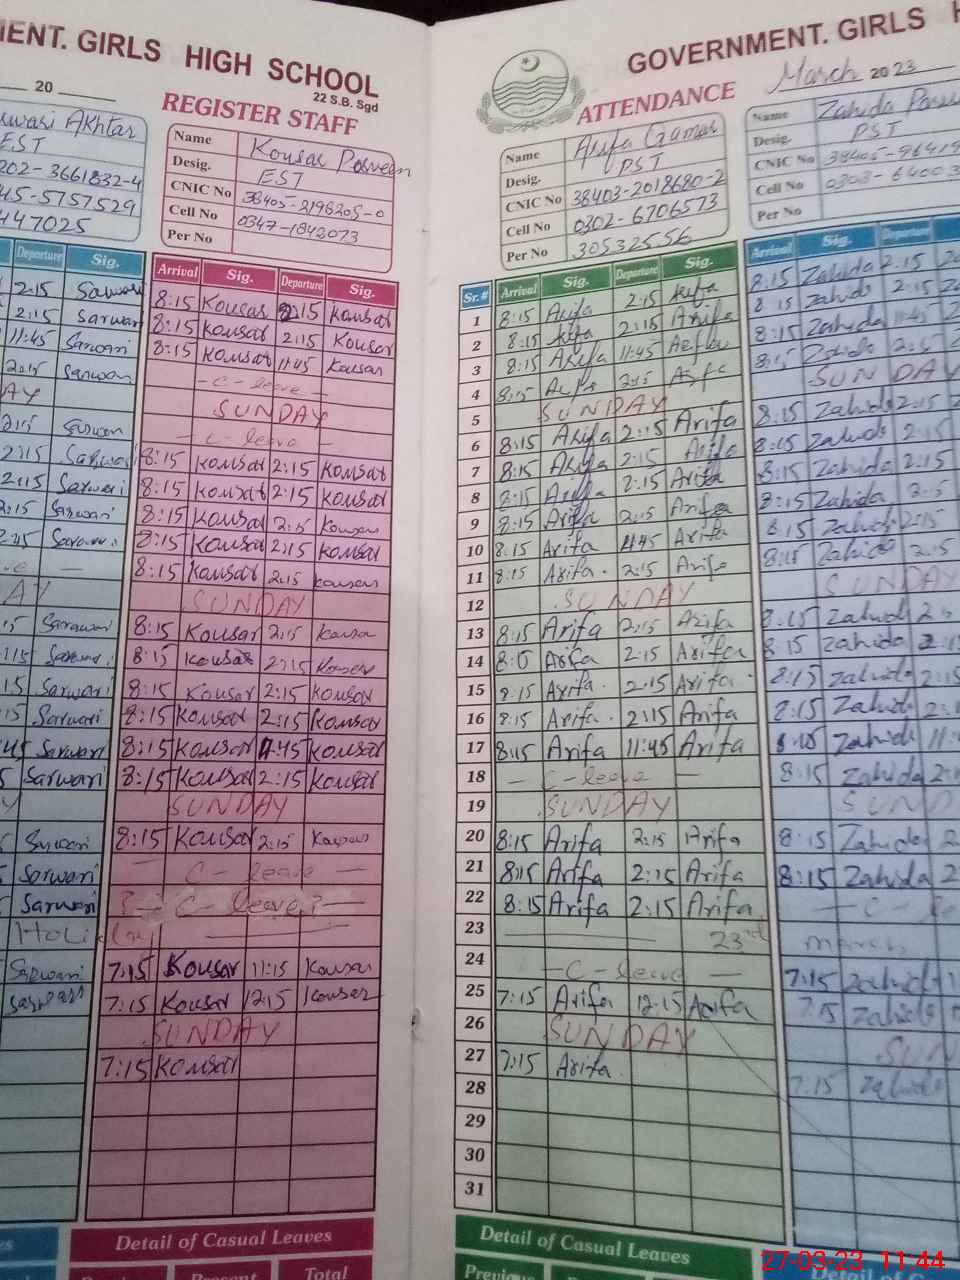 MENT. GIRLS HIGH SCHOOL
22 S.B. Sgd
20
REGISTER STAFF
Akhtar
EST
202-3661832-4
45-5757529
447025
Name Kousar Parveen
Desig. EST
CNIC No 38405-2196205-0
Cell No 0347-1842073
Per No
Departure Sig.
2:15 Sarwari
2:15 Sarwari
11:45 Sarwari
2:15 Sarwari
AY
2:15 Sarwari
2:15 Sarwari
2:15 Sarwari
2:15 Sarwari
:45 Sarwari
ve —
AY
:15 Sarwari
:15 Sarwari
15 Sarwari
:15 Sarwari
:45 Sarwari
5 Sarwari
Y
Sarwari
Sarwari
Sarwari
Holiday
Sarwari
Sarwari
Arrival Sig. Departure Sig.
8:15 Kousar 2:15 Kousar
8:15 Kousar 2:15 Kousar
8:15 Kousar 11:45 Kousar
- C - leave -
SUNDAY
- C - leave -
8:15 Kousar 2:15 Kousar
8:15 Kousar 2:15 Kousar
8:15 Kousar 2:15 Kousar
8:15 Kousar 2:15 Kousar
8:15 Kousar 2:15 Kousar
SUNDAY
8:15 Kousar 2:15 Kousar
8:15 Kousar 2:15 Kousar
8:15 Kousar 2:15 Kousar
8:15 Kousar 2:15 Kousar
8:15 Kousar 11:45 Kousar
8:15 Kousar 2:15 Kousar
SUNDAY
8:15 Kousar 2:15 Kousar
— C - leave —
C - leave
7:15 Kousar 11:15 Kousar
7:15 Kousar 12:15 Kousar
SUNDAY
7:15 Kousar
Detail of Casual Leaves
Present Total
GOVERNMENT. GIRLS H
ATTENDANCE March 2023
Name Arifa Qamar
Desig. PST
CNIC No 38403-2018680-2
Cell No 0302-6706573
Per No 30532556
Name Zahida
Desig. PST
CNIC No 38405-96419
Cell No 0303-6400
Per No
Sr.# Arrival Sig. Departure Sig.
1 8:15 Arifa 2:15 Arifa
2 8:15 Arifa 2:15 Arifa
3 8:15 Arifa 11:45 Arifa
4 8:15 Arifa 2:15 Arifa
5 SUNDAY
6 8:15 Arifa 2:15 Arifa
7 8:15 Arifa 2:15 Arifa
8 8:15 Arifa 2:15 Arifa
9 8:15 Arifa 2:15 Arifa
10 8:15 Arifa 11:45 Arifa
11 8:15 Arifa 2:15 Arifa
12 SUNDAY
13 8:15 Arifa 2:15 Arifa
14 8:15 Arifa 2:15 Arifa
15 8:15 Arifa 2:15 Arifa
16 8:15 Arifa 2:15 Arifa
17 8:15 Arifa 11:45 Arifa
18 — C - leave —
19 SUNDAY
20 8:15 Arifa 2:15 Arifa
21 8:15 Arifa 2:15 Arifa
22 8:15 Arifa 2:15 Arifa
23 23rd
24 — C - leave —
25 7:15 Arifa 12:15 Arifa
26 SUNDAY
27 7:15 Arifa
28
29
30
31
Detail of Casual Leaves
Previous
Arrival Sig. Departure
8:15 Zahida 2:15
8:15 Zahida 2:15
8:15 Zahida 11:45
8:15 Zahida 2:15
SUNDAY
8:15 Zahida 2:15
8:15 Zahida 2:15
8:15 Zahida 2:15
8:15 Zahida 2:15
8:15 Zahida 2:15
8:15 Zahida 2:15
SUNDAY
8:15 Zahida 2:
8:15 Zahida 2:1
8:15 Zahida 2:15
8:15 Zahida 2:1
8:15 Zahida 11:
8:15 Zahida 2:
SUND
8:15 Zahida 2
8:15 Zahida 2
— C - le
march
7:15 Zahida
7:15 Zahida
SUN
7:15 Zahida
27-03-23 11:44